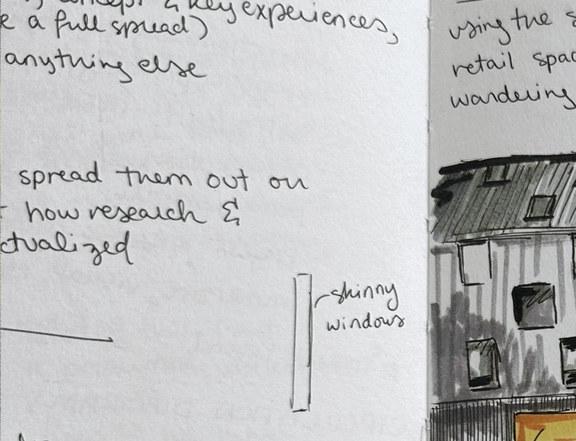 & key experiences,
e a full spread)
anything else
spread them out on
how research &
ctualized
skinny
windows
using the s
retail spac
wandering